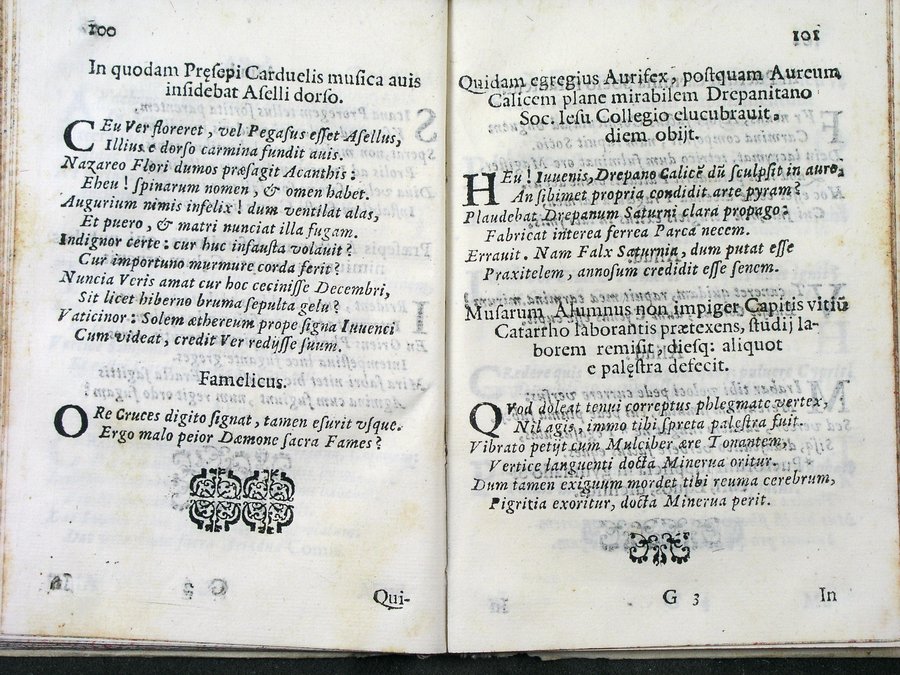 100
In quodam Pręsepi Carduelis musica auis
insidebat Aselli dorso.
CEu Ver floreret, vel Pegasus esset Asellus,
Illius è dorso carmina fundit auis.
Nazareo Flori dumos præsagit Acanthis:
Eheu! spinarum nomen, & omen habet.
Augurium nimis infelix! dum ventilat alas,
Et puero, & matri nunciat illa fugam.
Indignor certe: cur huc infausta volauit?
Cur importuno murmure corda ferit?
Nuncia Veris amat cur hoc cecinisse Decembri,
Sit licet hiberno bruma sepulta gelu?
Vaticinor: Solem æthereum prope signa Iuuenci
Cum videat, credit Ver redijsse suum.
Famelicus.
ORe Cruces digito signat, tamen esurit vsque.
Ergo malo peior Dæmone sacra Fames?
Qui-
101
Quidam egregius Aurifex, postquam Aureum
Calicem plane mirabilem Drepanitano
Soc. Iesu Collegio elucubrauit,
diem obijt.
HEu! Iuuenis, Drepano Calicē dū sculpsit in auro,
An sibimet propria condidit arte pyram?
Plaudebat Drepanum Saturni clara propago:
Fabricat interea ferrea Parca necem.
Errauit. Nam Falx Saturnia, dum putat esse
Praxitelem, annosum credidit esse senem.
Musarum Alumnus non impiger Capitis vitiū
Catarrho laborantis prætexens, studij la-
borem remisit, diesq: aliquot
e palęstra defecit.
QVod doleat tenui correptus phlegmate vertex,
Nil agis, immo tibi spreta palestra fuit.
Vibrato petijt cum Mulciber ære Tonantem,
Vertice languenti docta Minerua oritur.
Dum tamen exiguum mordet tibi reuma cerebrum,
Pigritia exoritur, docta Minerua perit.
G 3
In